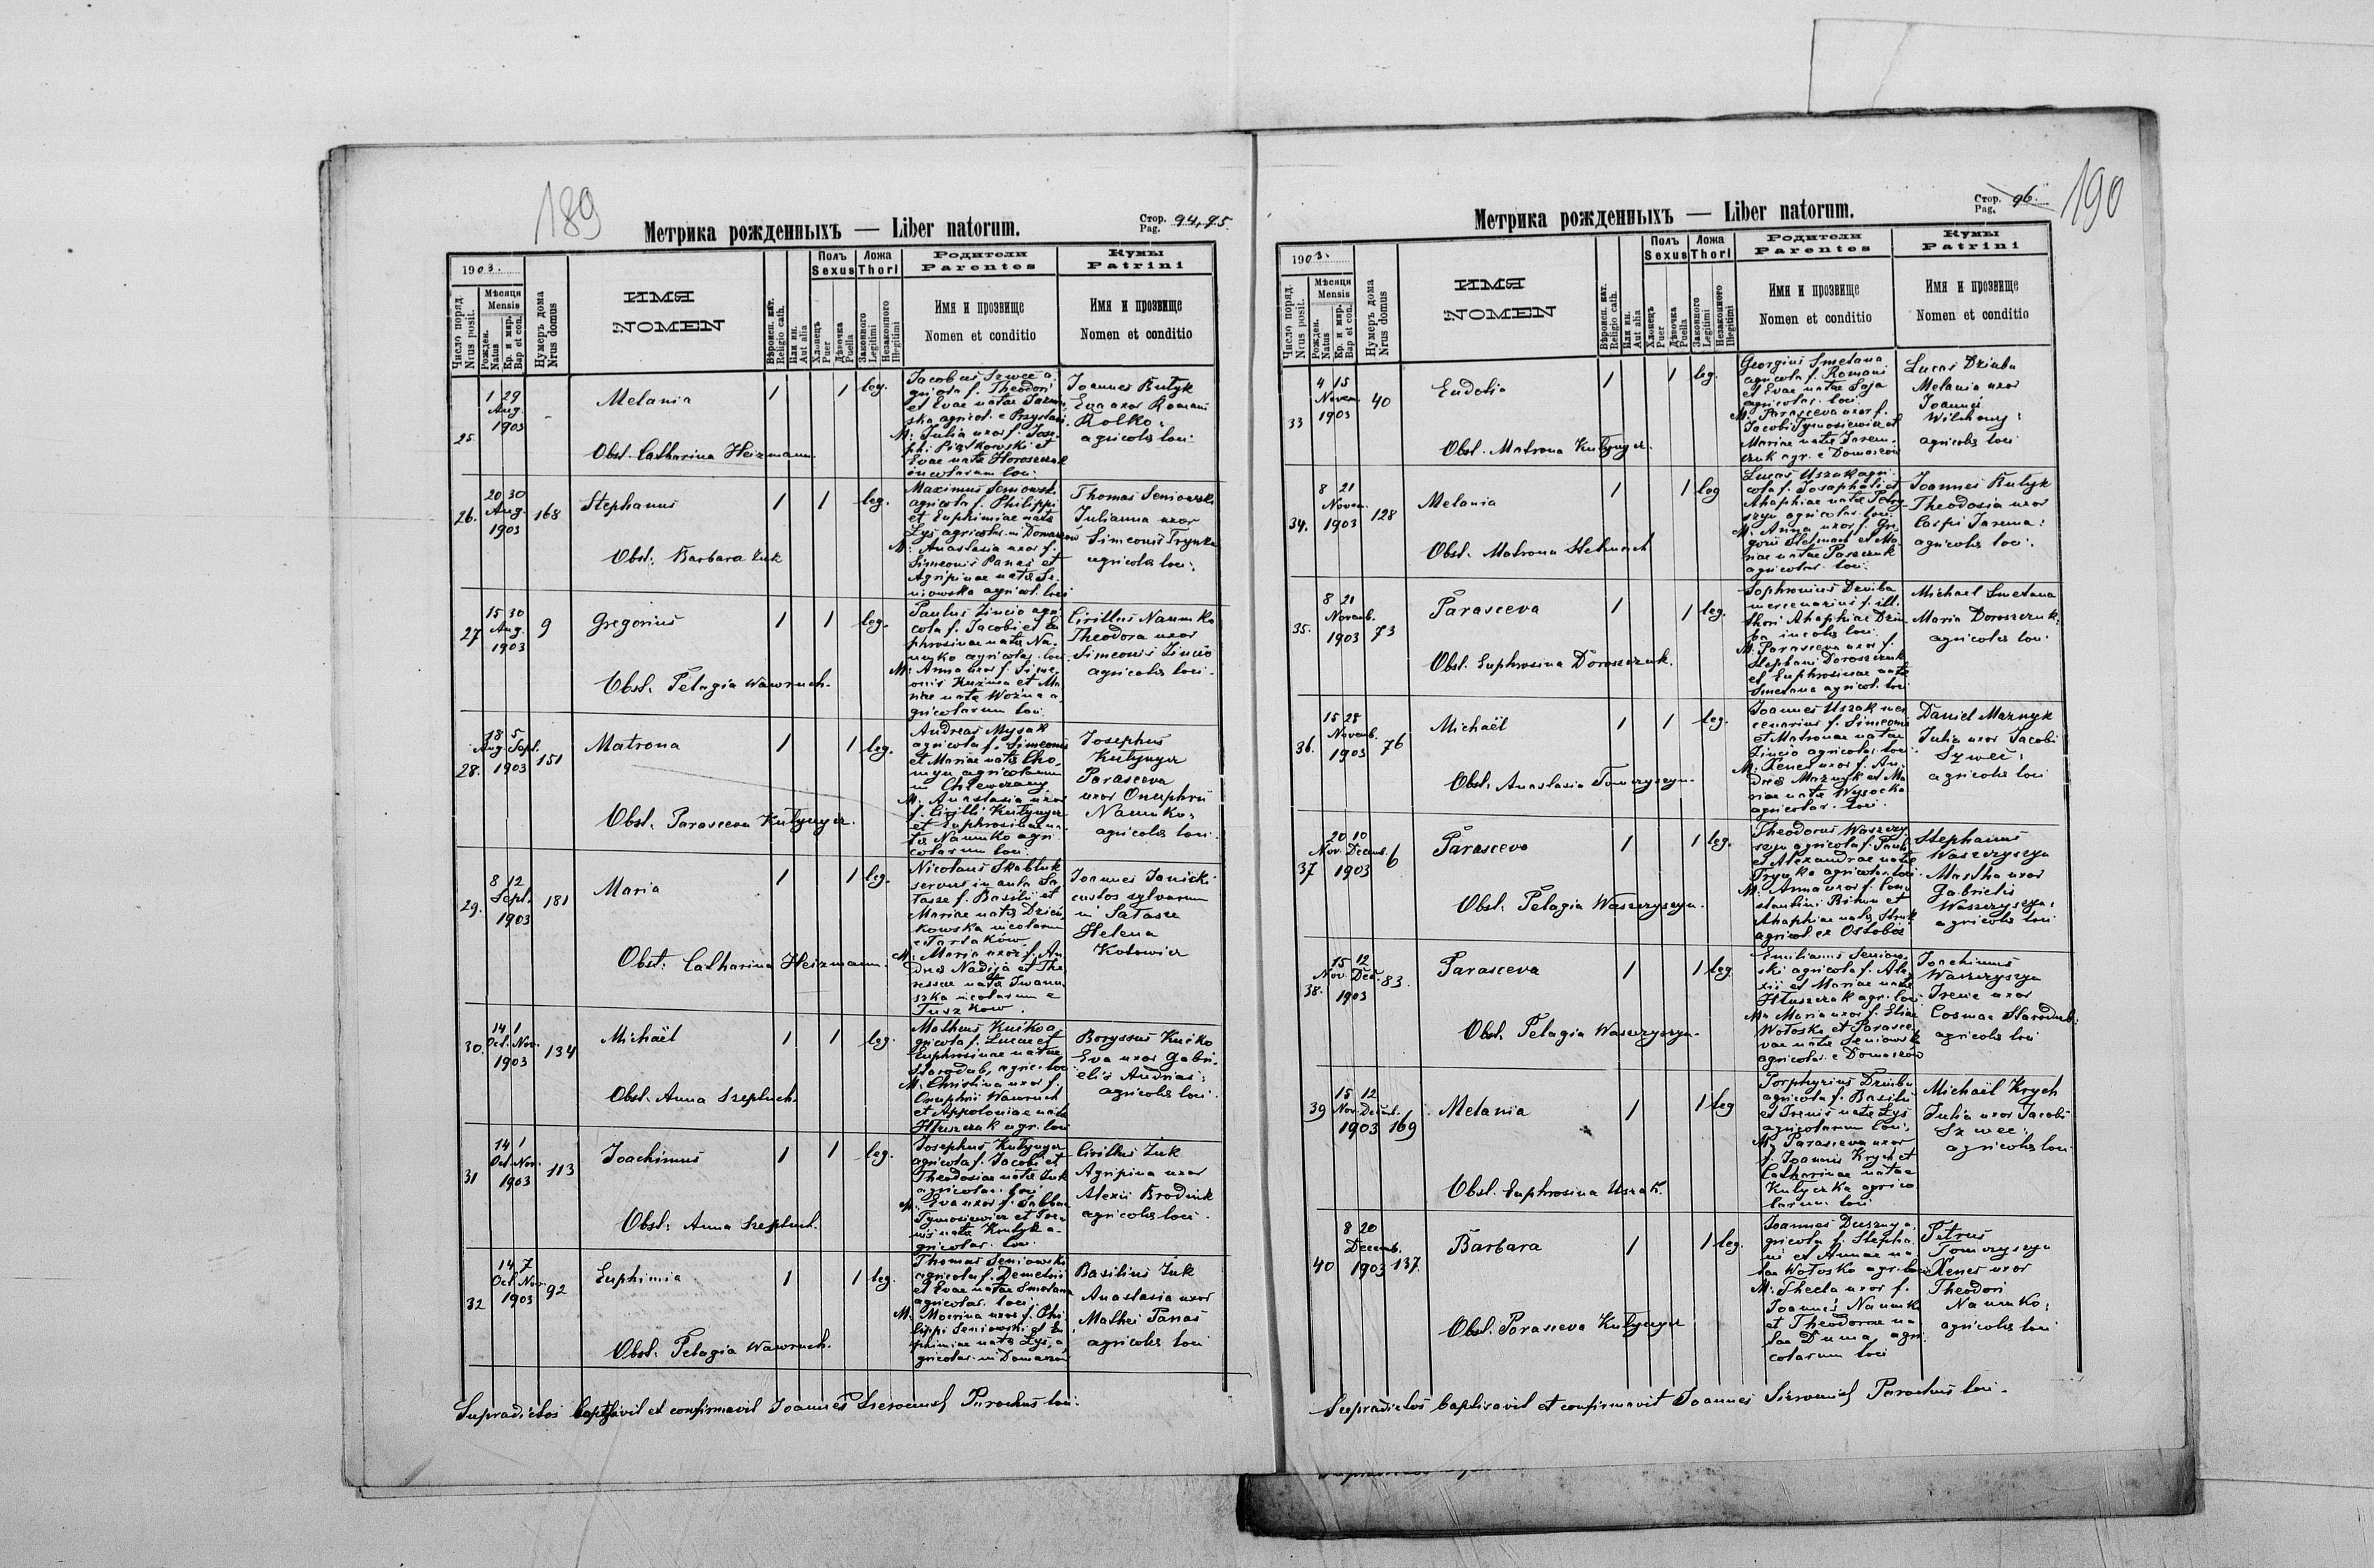 189
Метрика рожденныхъ — Liber natorum.
Стор. Pag. 94,95
1903.
Число поряд. Nrus posit.
Мѣсяця Mensis
Рожден. Natus
Кр. и мир. Bap et con.
Нумеръ дома Nrus domus
ИМЯ
NOMEN
Вѣроисп. кат. Religio cath.
Или ин. Aut alia
Полъ Sexus
Хлопецъ Puer
Дѣвочка Puella
Ложа Thori
Законного Legitimi
Незаконного Illegitimi
Родители
Parentes
Имя и прозвище
Nomen et conditio
Кумы
Patrini
Имя и прозвище
Nomen et conditio
25.
1 29
Aug.
1903
-
Melania
Obst. Catharina Heizmann.
1 1 leg.
Jacobus Szwec a-
gricola f. Theodori
et Evae natae
M: Julia uxor f. Jose-
phi Piątkowski et
Evae natae Horoszczuk
incolarum loci.
Joannes Kutyk
Eva uxor Romani
Rolko:
agricolae loci.
26.
20 30
Aug.
1903
168
Stephanus
Obst: Barbara Żuk
1 1 leg.
Maximus Seniowski
agricola f. Philippi
et Euphimiae natae
Łyś agricolar. in Domaszów
M: Anastasia uxor f.
Simeonis Panas et
Agripinae natae Se-
niowska agricol. loci
Thomas Seniowski
Julianna uxor
Simeonis Trynka
agricolae loci.
27
15 30
Aug.
1903
9
Gregorius
Obst. Pelagia Wawruch.
1 1 leg.
Paulus Zincio agri-
cola f. Jacobi et Eu-
phrosinae natae Na-
umko agricolar. loci.
M: Anna uxor f. Sime-
onis Kuzma et Ma-
riae natae Woźna a-
gricolarum loci.
Cirillus Naumko
Theodora uxor
Simeonis Zincio
agricolae loci.
28.
18 5
Aug. Sept.
1903
151
Matrona
Obst. Parasceva Kutynyer.
1 1 leg.
Andreas Mysak
agricola f. Simeonis
et Mariae natae Cho-
myn agricolarum
in Chlewczany
M: Anastasia uxor
f. Cirilli Kutynyer
et Euphrosinae na-
tae Naumko agri-
colarum loci.
Josephus
Kutynyer
Parasceva
uxor Onuphrii
Naumko:
agricolae loci.
29.
8 12
Sept.
1903
181
Maria
Obst: Catharina Heizmann.
1 1 leg.
Nicolaus Skabluk
servus in aula Sa-
łasze f. Basilii et
Mariae natae
kowska incolarum
e Tartaków
M: Maria uxor f. An-
dreae Nadija et The-
ressae natae Iwanu-
szka incolarum e
Tuszków.
Joannes Janicki
custos sylvarum
in Sałasze
Helena
Kotowicz
30.
14 1
Oct. Nov.
1903
134
Michaël
Obst. Anna Szeptuch.
1 1 leg.
Matheus Kućko a-
gricola f. Lucae et
Euphrosinae natae
Starodub, agric. loci
M: Christina uxor f.
Onuphrii Wawruch
et Appoloniae natae
Hłuszczak agr. loci
Boryssus Kućko
Eva uxor Gabri-
elis Andrias:
agricolae loci.
31
14 1
Oct. Nov.
1903
113
Joachimus
Obst: Anna Szeptuch.
1 1 leg.
Josephus Kutynyer
agricola f. Jacobi et
Theodosiae natae Żuk
agricolar. loci
M: Eva uxor f. Sabbae
Tymosiewicz et Ire-
nis natae Kutyk a-
gricolar. loci.
Cirillus Żuk
Agripina uxor
Alexii Brodnik
agricolae loci.
32
14 7
Oct. Nov.
1903
92
Euphimia
Obst: Pelagia Wawruch.
1 1 leg.
Thomas Seniowski
agricola f. Demetrii
et Evae natae Smetana
agricolar. loci
M: Macrina uxor f. Phi-
lippi Seniowski et Eu-
phimiae natae Łyś, a-
gricolar. in Domaszów
Basilius Żuk
Anastasia uxor
Mathei Panas
agricolae loci
Supradictos baptisavit et confirmavit Joannes Parochus loci.
190
Метрика рожденныхъ — Liber natorum.
Стор. Pag. 96.
1903.
Число поряд. Nrus posit.
Мѣсяця Mensis
Рожден. Natus
Кр. и мир. Bap et con.
Нумеръ дома Nrus domus
ИМЯ
NOMEN
Вѣроисп. кат. Religio cath.
Или ин. Aut alia
Полъ Sexus
Хлопецъ Puer
Дѣвочка Puella
Ложа Thori
Законного Legitimi
Незаконного Illegitimi
Родители
Parentes
Имя и прозвище
Nomen et conditio
Кумы
Patrini
Имя и прозвище
Nomen et conditio
33
4 15
Novem.
1903
40
Eudotia
Obst. Matrona Kutynyer.
1 1 leg.
Georgius Smetana
agricola f. Romani
et Evae natae Soja
agricolar. loci.
M: Parasceva uxor f.
Jacobi Tymosiewicz et
Mariae natae Jarem-
czuk agr. e Domaszów
Lucas Dziuba
Melania uxor
Joannis
agricolae loci
34.
8 21
Novem.
1903
128
Melania
Obst. Matrona Hetmach
1 1 leg
Lucas Uszak agri-
cola f. Josaphati et
Ahaphiae natae
agricolar. loci.
M: Anna uxor f. Gre-
gorii Hetmach et Ma-
riae natae Paszczuk
agricolar. loci.
Joannes Kutyk
Theodosia uxor
Caspi Jarema:
agricolae loci.
35.
8 21
Novemb.
1903
73
Parasceva
Obst. Euphrosina Doroszczuk.
1 1 leg.
Sophronius Dziuba
mercenarius f. ill.
thori Ahaphiae Dziu-
ba incolae loci
M: Parasceva uxor f.
Stephani Doroszczuk
et Euphrosinae natae
Smetana agricol. loci
Michael Smetana
Maria Doroszczuk:
agricolae loci.
36.
15 28
Novemb.
1903
76
Michaël
Obst: Anastasia Tomczyszyn.
1 1 leg.
Joannes Uszak mer-
cenarius f. Simeonis
et Matronae natae
Zincio agricolar. loci.
M: Xenes uxor f. An-
dreae Maznyk et Ma-
riae natae Wysocka
agricolar. loci.
Daniel Maznyk
Julia uxor Jacobi
Szwec:
agricolae loci
37
20 10
Nov. Decemb.
1903
6
Parasceva
Obst. Pelagia Waszczyszyn.
1 1 leg.
Theodorus Waszczy-
szyn agricola f. Pauli
et Alexandrae natae
Trynka agricolar. loci.
M: Anna uxor f. Con-
stantini Bihun et
Ahaphiae natae
agricol. ex Ostobuż
Stephanus
Waszczyszyn
Martha uxor
Gabrielis
Waszczyszyn:
agricolae loci
38.
15 12
Nov. Dec.
1903
83.
Parasceva
Obst. Pelagia Waszczyszyn.
1 1 leg.
Emilianus Seniow-
ski agricola f. Ale-
xii et Mariae natae
Hłuszczak agr. loci
M: Maria uxor f. Eliae
Wołoszko et Parasce-
vae natae Seniowska
agricolar. e Domaszów
Joachimus
Waszczyszyn
Irene uxor
Cosmae Starodub:
agricolae loci
39
15 12
Nov. Decemb.
1903
169
Melania
Obst. Euphrosina Uszak.
1 1 leg
Porphyrius Dziuba
agricola f. Basilii
et Irenis natae Łyś
agricolarum loci,
M: Parasceva uxor
f. Joannis Krych et
Catharinae natae
Kutyczka agrico-
larum loci
Michaël Krych
Julia uxor Jacobi
Szwec:
agricolae loci
40
8 20
Decemb.
1903
137.
Barbara
Obst. Parasceva Kutynyer
1 1 leg.
Joannes Duszny a-
gricola f. Stepha-
ni et Annae na-
tae Wołoszko agr. loci
M: Thecla uxor f.
Joannis Naumko
et Theodorae na-
tae Duma, agri-
colarum loci
Petrus
Tomczyszyn
Xenes uxor
Theodori
Naumko:
agricolae loci
Supradictos baptisavit et confirmavit Joannes Parochus loci.